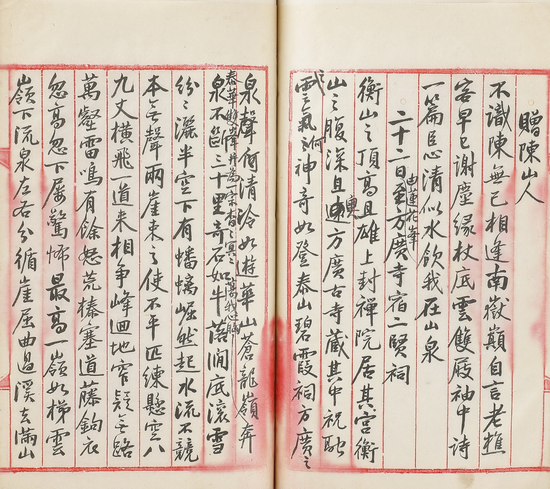 贈陳山人
不識陳無已相逢南嶽巔自言老樵
客早已謝塵緣杖底雲雙屐袖中詩
一篇臣心清似水飲我在山泉
二十二日由蓮花峰至方廣寺宿二賢祠
衡山之頂高且雄上封禪院居其宮衡
山之腹深且奧方廣古寺藏其中祝融
雲氣何神奇如登泰山碧霞祠方廣之
泉聲何清冷如遊華山蒼龍嶺奔
泉不 三十里奇石如牛落澗底滾雪
紛〻灑半空下有蟠螭崛然起水流不競
本無聲兩崖束之使不平匹練懸空八
九丈橫飛一道來相爭峰迴地窄疑無路
萬壑雷鳴有餘怒荒榛塞道藤鉤衣
忽高忽下屢驚怖最高一嶺如梯雲
嶺下流泉左右分循崖屈曲過溪去滿山